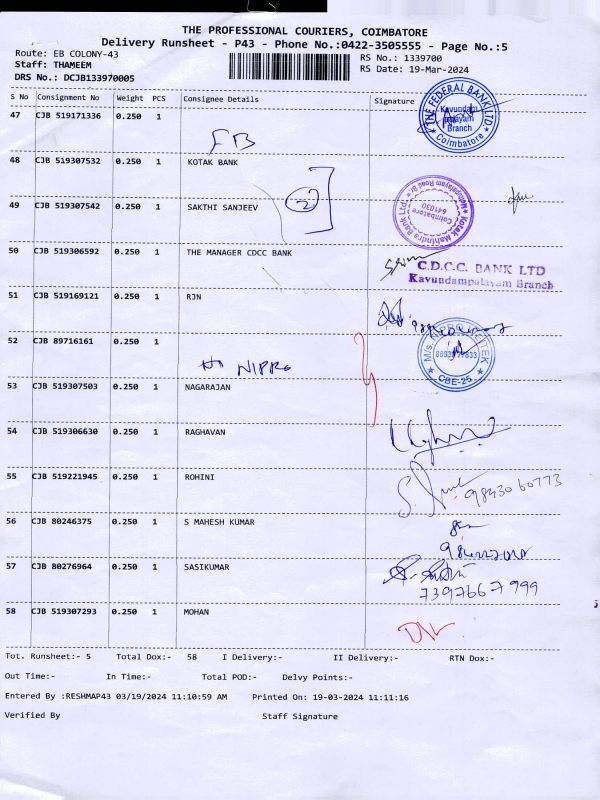 THE PROFESSIONAL COURIERS, COIMBATORE
Delivery Runsheet - P43 - Phone No.:0422-3505555 - Page No.:5
Route: EB COLONY-43
RS No.: 1339700
Staff: THAMEEM
RS Date: 19-Mar-2024
DRS No.: DCJB133970005
S No Consignment No Weight PCS Consignee Details Signature
47 CJB 519171336 0.250 1
FB
THE FEDERAL BANK LTD
Kavundam palayam Branch
Coimbatore
48 CJB 519307532 0.250 1 KOTAK BANK
2
49 CJB 519307542 0.250 1 SAKTHI SANJEEV
Kotak Mahindra Bank Ltd.
Coimbatore
641030
50 CJB 519306592 0.250 1 THE MANAGER CDCC BANK
C.D.C.C. BANK LTD
Kavundampalayam Branch
51 CJB 519169121 0.250 1 RJN
52 CJB 89716161 0.250 1
NIPRO
CBE-25
53 CJB 519307503 0.250 1 NAGARAJAN
54 CJB 519306630 0.250 1 RAGHAVAN
55 CJB 519221945 0.250 1 ROHINI
9843060773
56 CJB 80246375 0.250 1 S MAHESH KUMAR
57 CJB 80276964 0.250 1 SASIKUMAR
7397667999
58 CJB 519307293 0.250 1 MOHAN
Tot. Runsheet:- 5 Total Dox:- 58 I Delivery:- II Delivery:- RTN Dox:-
Out Time:- In Time:- Total POD:- Delvy Points:-
Entered By :RESHMAP43 03/19/2024 11:10:59 AM Printed On: 19-03-2024 11:11:16
Verified By Staff Signature